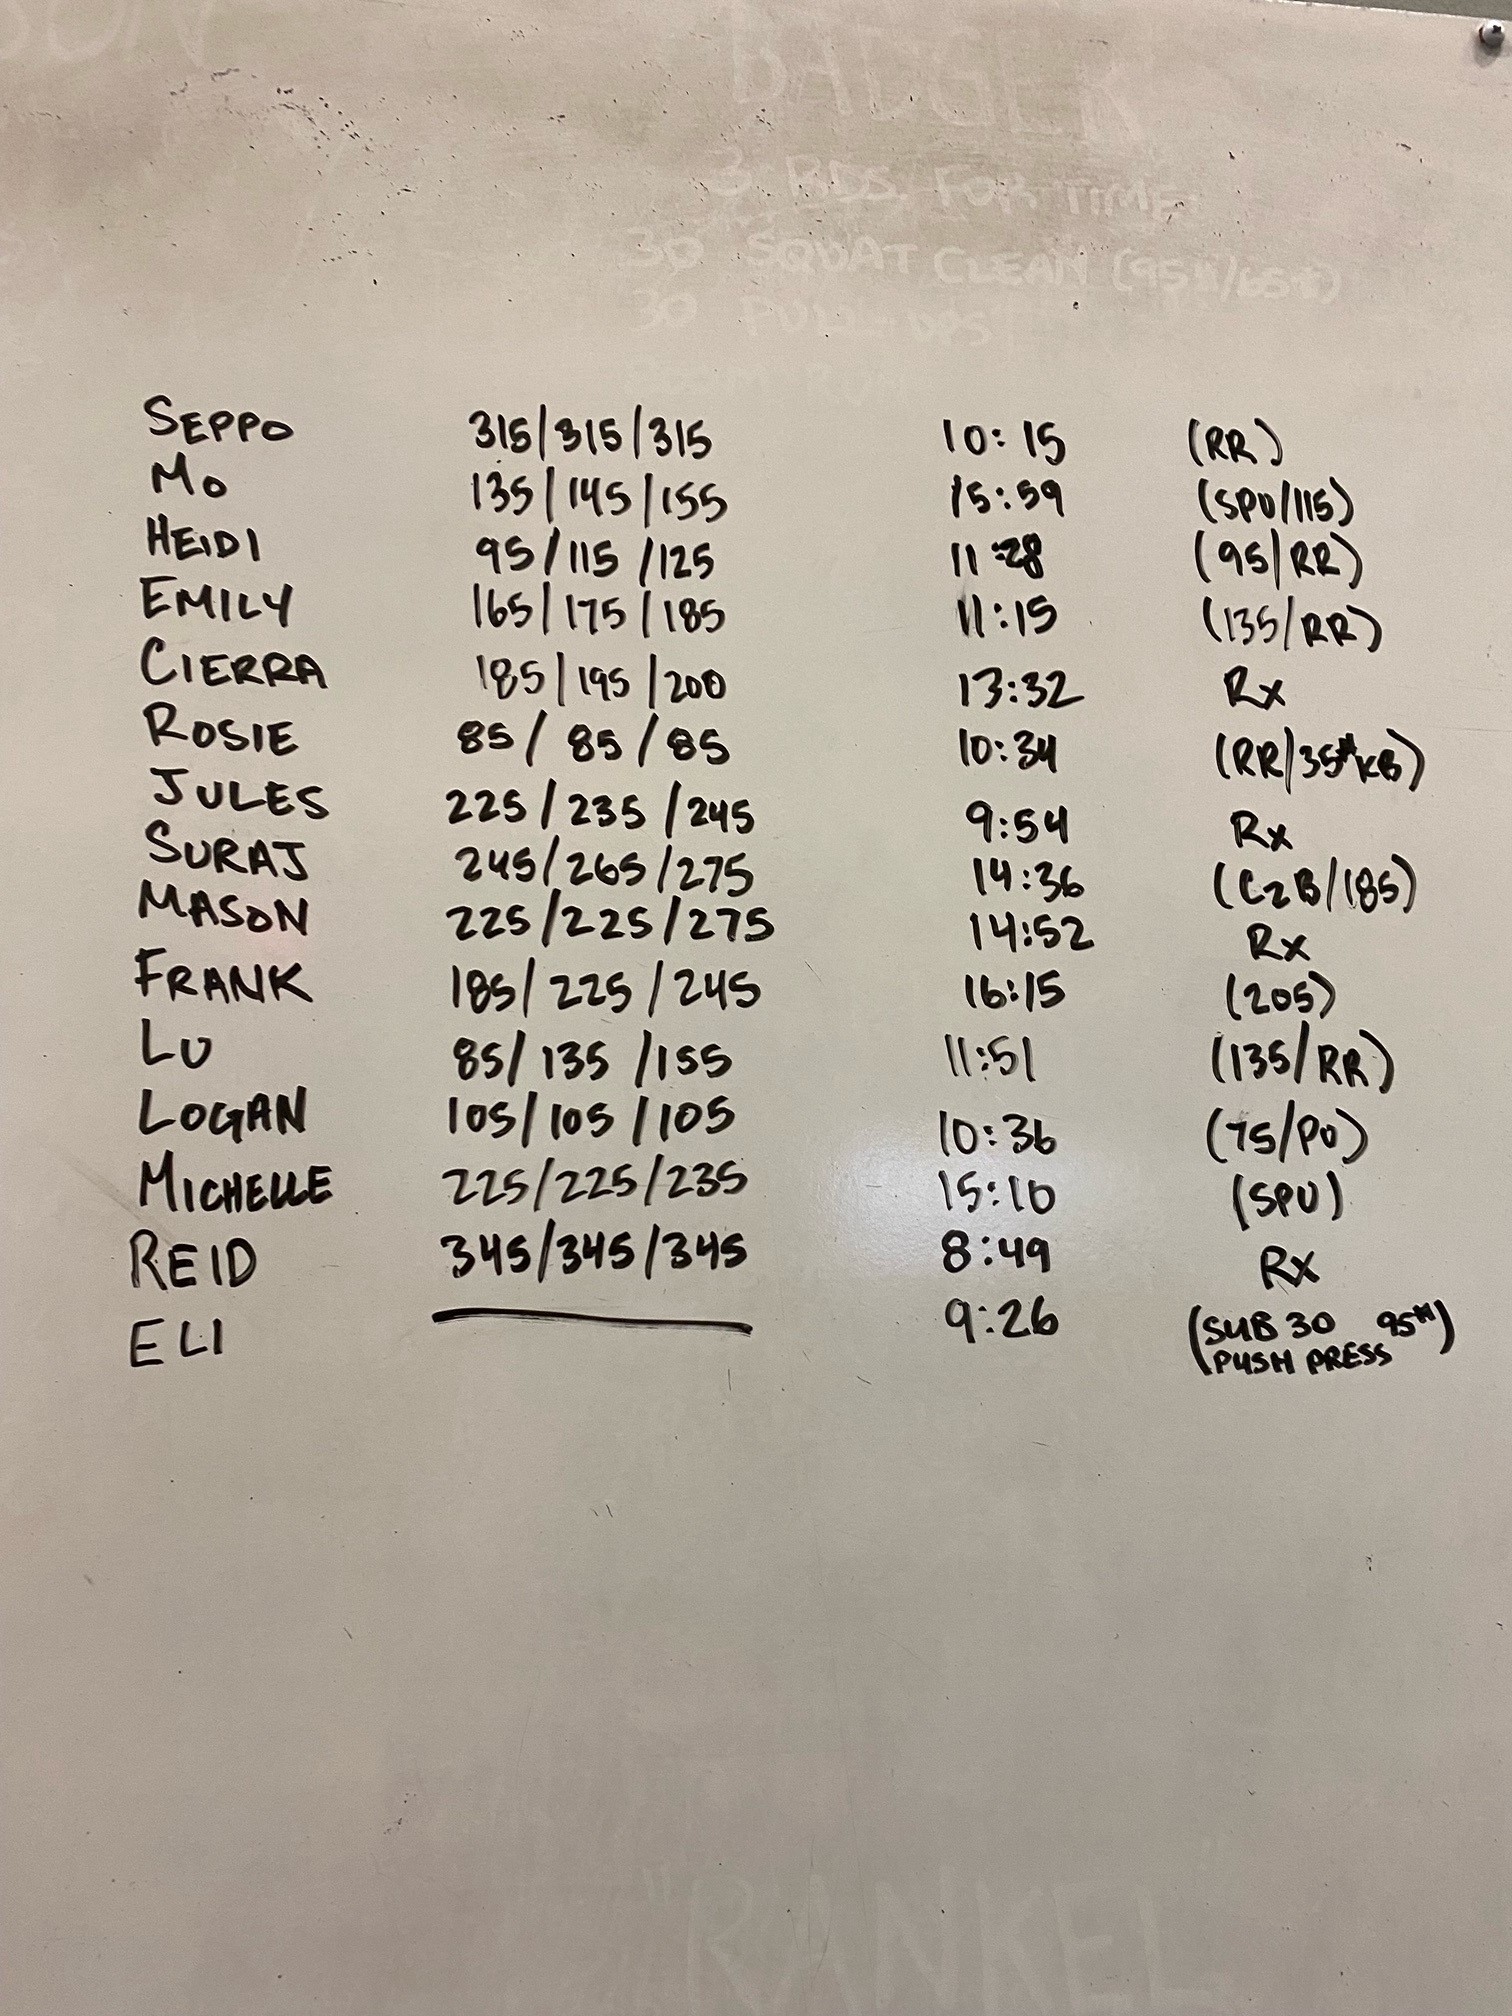 SON
BADGER
3 RDS. FOR TIME
30 SQUAT CLEAN (95#/65#)
30 PULL-UPS
SEPPO 315/315/315 10:15 (RR)
MO 135/145/155 15:59 (SPU/115)
HEIDI 95/115/125 11:28 (95/RR)
EMILY 165/175/185 11:15 (135/RR)
CIERRA 185/195/200 13:32 Rx
ROSIE 85/85/85 10:34 (RR/35#KB)
JULES 225/235/245 9:54 Rx
SURAJ 245/265/275 14:36 (C2B/185)
MASON 225/225/275 14:52 Rx
FRANK 185/225/245 16:15 (205)
LU 85/135/155 11:51 (135/RR)
LOGAN 105/105/105 10:36 (75/PU)
MICHELLE 225/225/235 15:10 (SPU)
REID 345/345/345 8:49 Rx
ELI 9:26 (SUB 30 95#
PUSH PRESS)
"RANKEL